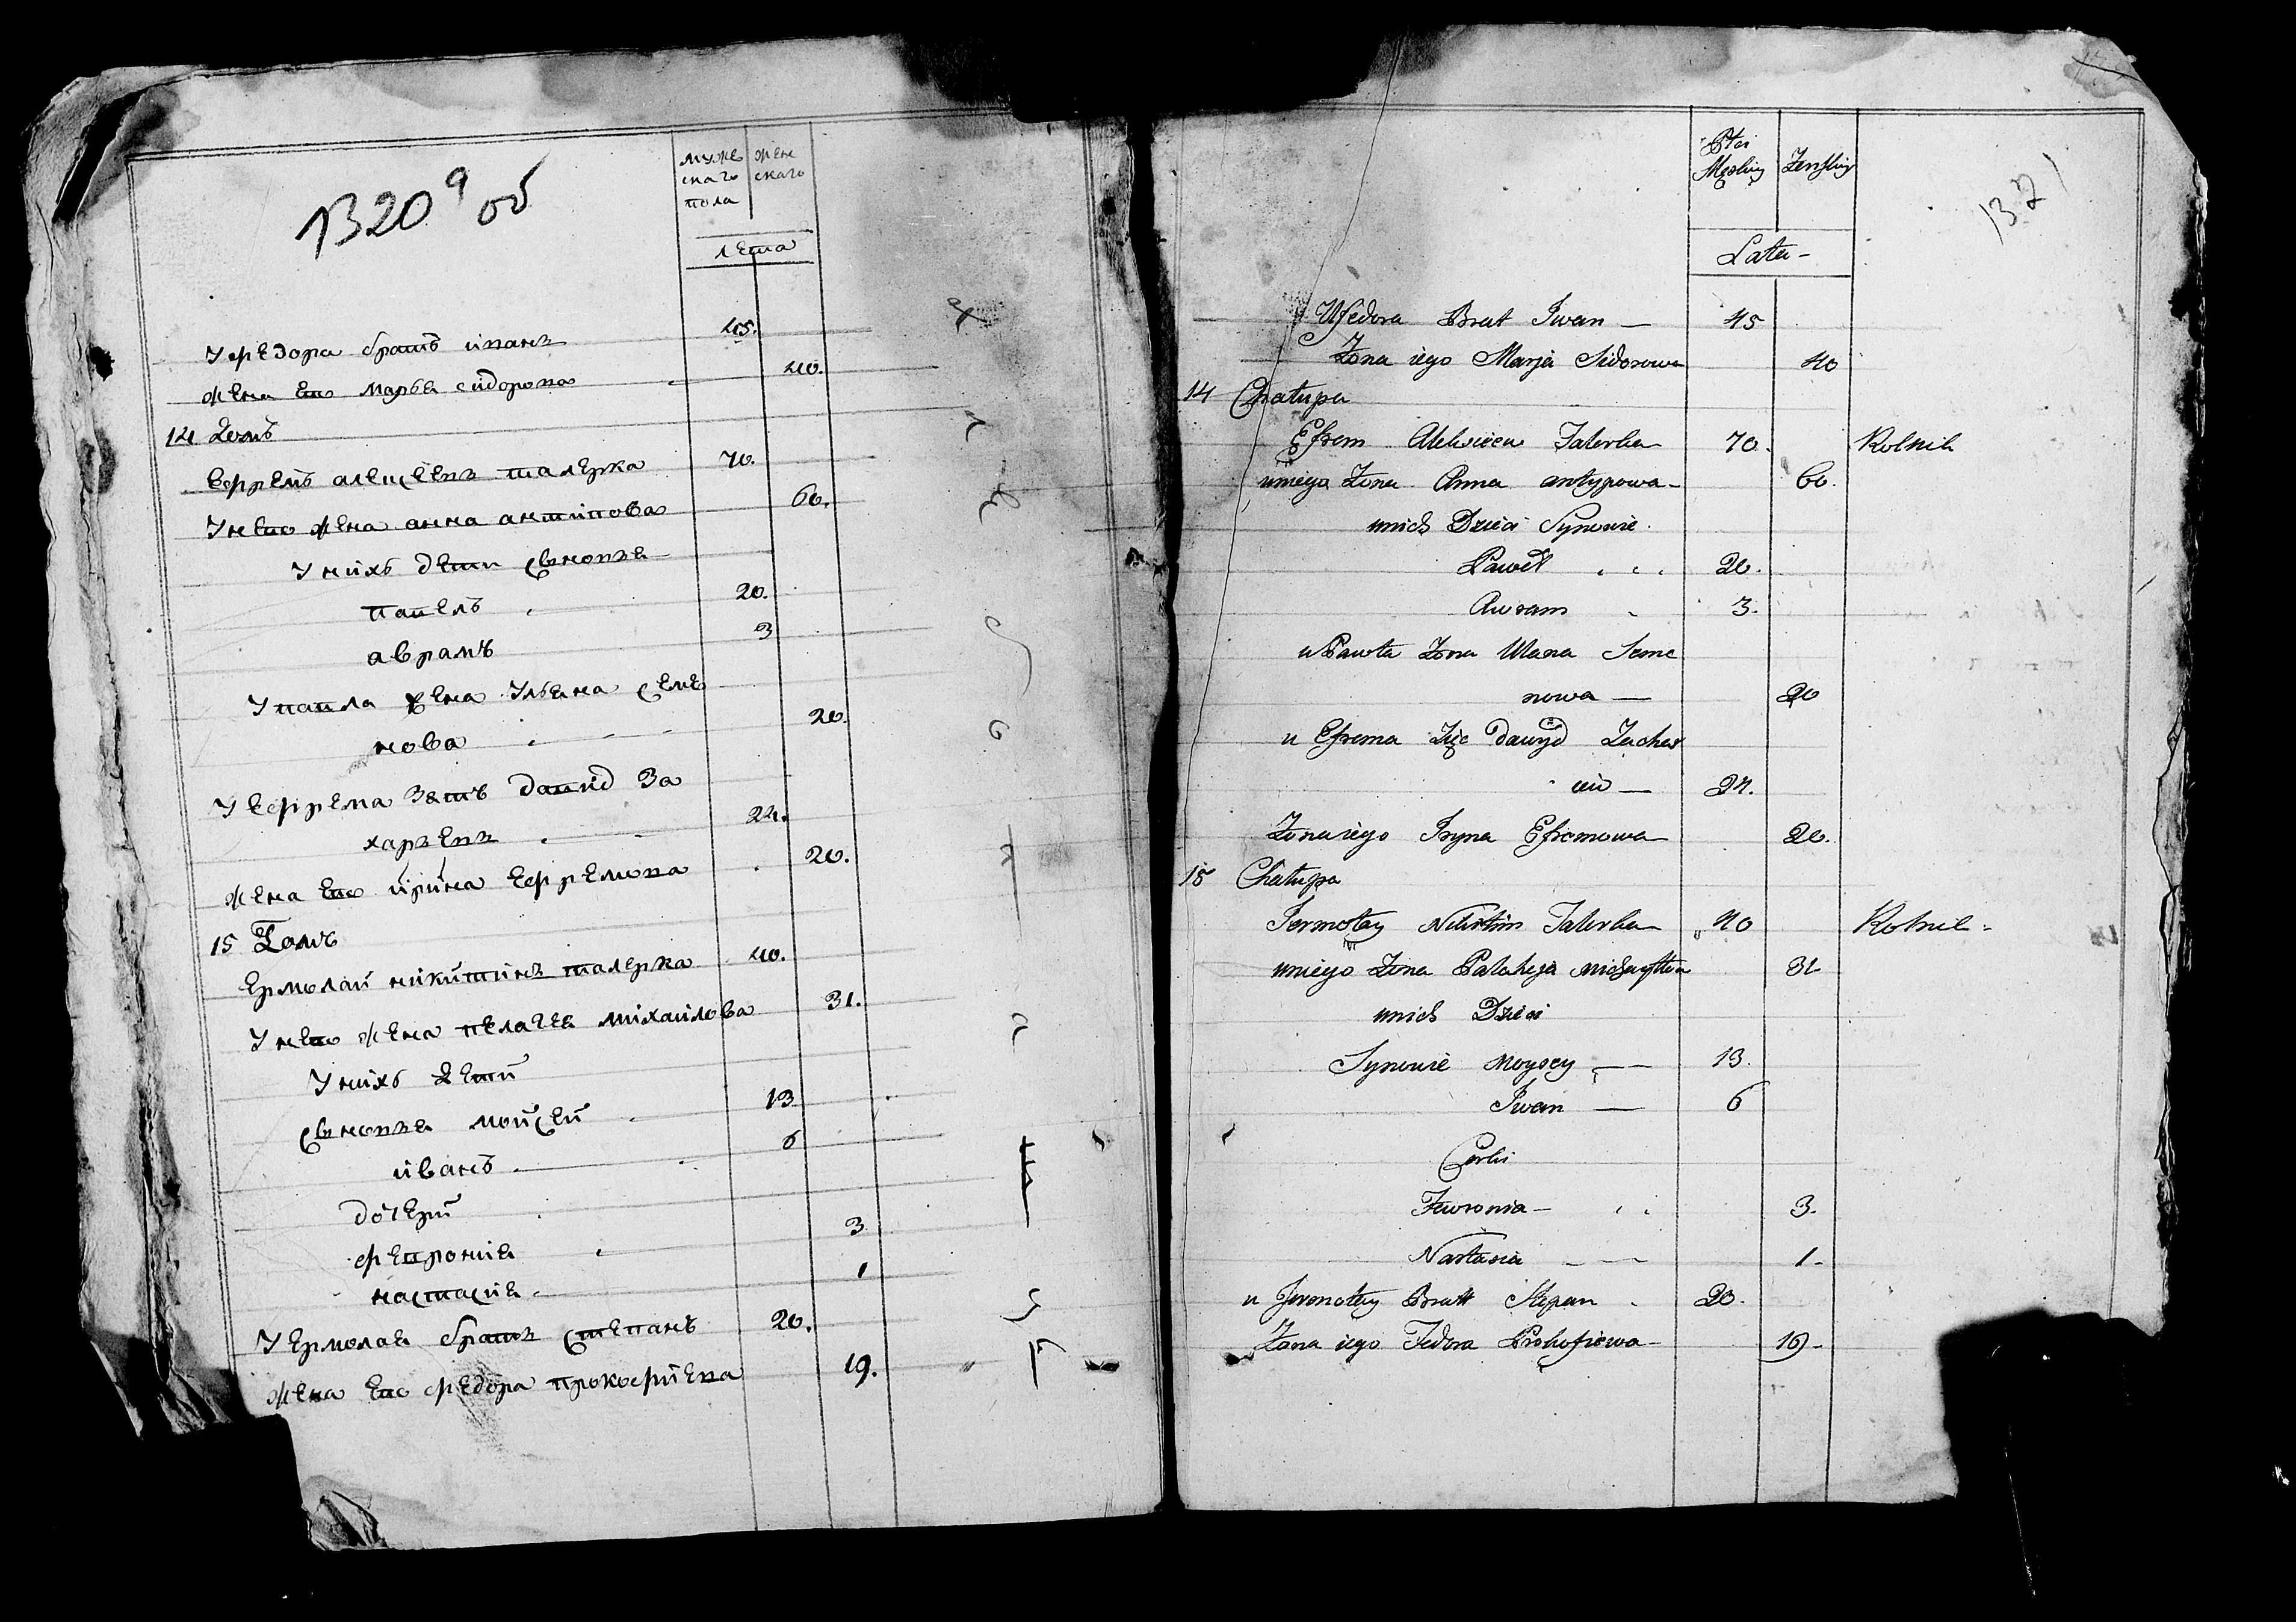 1320 9 об
муже
скаго
пола
жен
скаго
лета
У федора братъ иванъ 45.
жена его марья сидорова 40.
14 Домъ
Ефремъ алексеевъ талерка 70.
У него жена анна антипова 60.
У нихъ дети сыновья
павелъ 20.
аврамъ 3
У павла жена Ульяна семе
нова 20.
У Ефрема зять давид За
харъевъ 24.
жена его ирина Ефремова 20.
15 Домъ
Ермолай никитинъ талерка 40.
У него жена пелагея михаилова 31.
У нихъ дети
сыновья мойсей 13
иванъ 6
дочери
феврония 3
настасия 1
У Ермолая братъ степанъ 20.
жена его федора прокофиева 19.
1321
Płci
Męskiey
Zenskiey
Lata
U Fedora Brat Iwan — 45
Zona iego Marja Sidorowa 40
14 Chałupa
Efrem Alekseiew Talerka 70. Rolnik
u niego Zona Anna antypowa 60.
u nich Dzieci Synowie
Paweł 20.
Awram 3.
u Pawła Zona Ulana Seme
nowa — 20
u Efrema Zięć Dawyd Zachar
ew — 24.
Zona iego Iryna Efremowa 20.
15 Chałupa
Jermołay Nikitin Talerka 40 Rolnik
u niego Zona Palaheja michayłowa 31
u nich Dzieci
Synowie Moysey — 13.
Iwan — 6
Corki
Fewronia 3.
Nastasia 1
u Jermołay Bratt Stepan 20.
Zona iego Fedora Prokofiewa 19